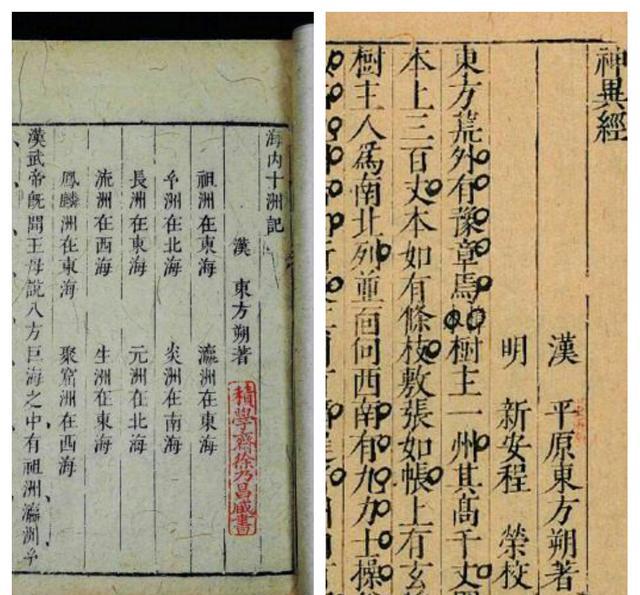 海内十洲記
漢 東方朔著
祖洲在東海 瀛洲在東海
𤣥洲在北海 炎洲在南海
長洲在東海 元洲在北海
流洲在西海 生洲在東海
鳳麟洲在東海 聚窟洲在西海
漢武帝既聞王母說八方巨海之中有祖洲瀛洲𤣥
積學齋徐乃昌藏書
神異經
漢 平原東方朔著
明 新安程 榮校
東方荒外有豫章焉此樹主一州其高千丈圍
本上三百丈本如有條枝敷張如帳上有玄
樹主人為南北列並面向西南有九力士操